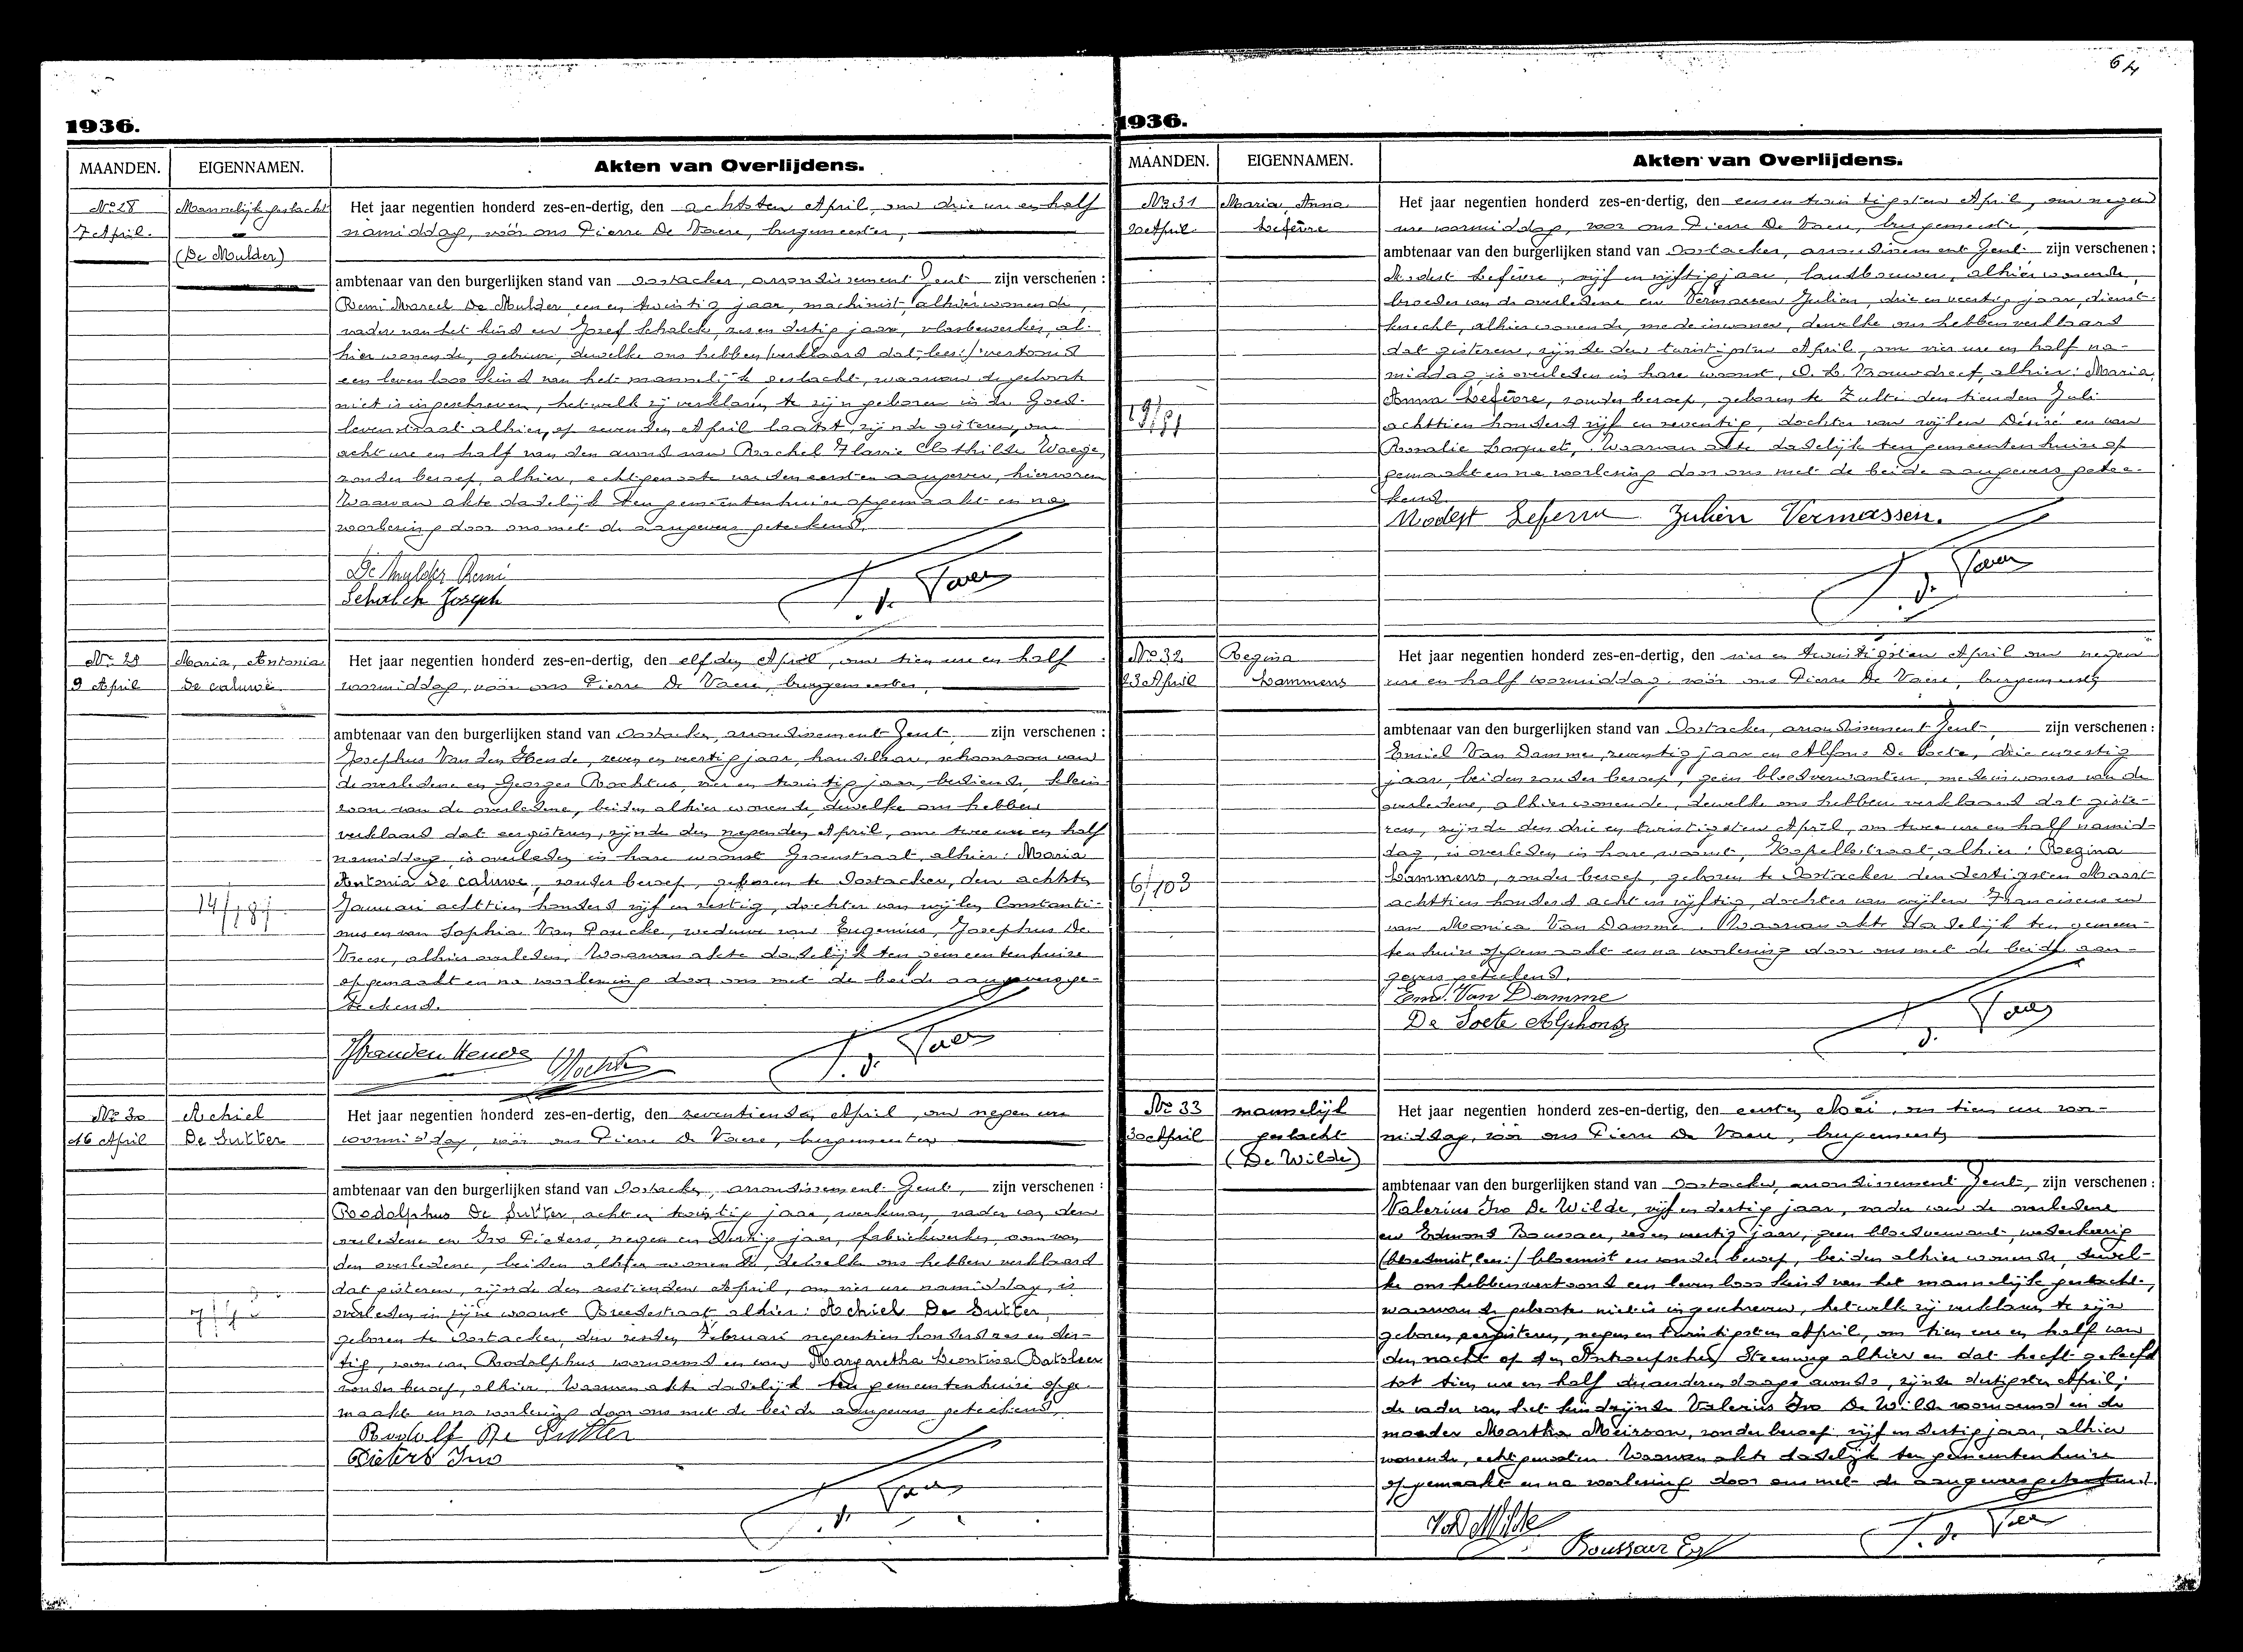 64
1936.
MAANDEN.
EIGENNAMEN.
Akten van Overlijdens.
No 28
7 April.
Mannelijk geslacht
(De Mulder)
Het jaar negentien honderd zes-en-dertig, den achtsten April, om drie ure en half
namiddag, vóór ons Pierre De Vaere, burgemeester,
ambtenaar van den burgerlijken stand van Oostacker, arrondissement Gent zijn verschenen :
Remi Marcel De Mulder, een en twintig jaar, machinist, alhier wonende,
vader van het kind en Jozef Schalck, zes en dertig jaar, vlasbewerker, al-
hier wonende, gebuur, dewelke ons hebben (verklaard dat-lees:) vertoond
een levenloos kind van het mannelijk geslacht, waarvan de geboorte
niet is ingeschreven, hetwelk zij verklaren te zijn geboren in de Goed-
levenstraat alhier, op zevenden April laatst, zijnde gisteren, om
acht ure en half van den avond van Rachel Flavie Clothilde Waege,
zonder beroep, alhier, echtgenoote van den eersten aangever, hiervoren
Waarvan akte dadelijk ten gemeentenhuize opgemaakt en na
voorlezing door ons met de aangevers geteekend.
De Mulder Remi
Schalck Joseph
P. d. Vaere
No 29
9 April
Maria, Antonia
De caluwé
14/181
Het jaar negentien honderd zes-en-dertig, den elfden April, om tien ure en half
voormiddag, vóór ons Pierre De Vaere, burgemeester,
ambtenaar van den burgerlijken stand van Oostacker, arrondissement Gent, zijn verschenen :
Josephus Van den Hende, zeven en veertig jaar, handelaar, schoonzoon van
de overledene en Georges Rochtus, vier en twintig jaar, bediende, klein-
zoon van de overledene, beiden alhier wonende, dewelke ons hebben
verklaard dat eergisteren, zijnde den negenden April, om twee ure en half
namiddag, is overleden in hare woonst Groenstraat, alhier: Maria
Antonia De caluwe, zonder beroep, geboren te Oostacker, den achtste
Januari achttien honderd vijf en zestig, dochter van wijlen Constanti-
nus en van Sophia Van Poucke, weduwe van Eugenius, Josephus De
Vreese, alhier overleden. Waarvan akte dadelijk ten gemeentenhuize
opgemaakt en na voorlezing door ons met de beide aangevers ge-
teekend.
J Vanden Hende Rochtus
P. d. Vaere
No 30
16 April
Achiel
De Sutter
Het jaar negentien honderd zes-en-dertig, den zeventienden April, om negen ure
voormiddag, vóór ons Pierre De Vaere, burgemeester
ambtenaar van den burgerlijken stand van Oostacker, arrondissement Gent, zijn verschenen :
Rodolphus De Sutter, acht en twintig jaar, werkman, vader van den
overledene en Ivo Pieters, negen en dertig jaar, fabriekwerker, oom van
den overledene, beiden alhier wonende, dewelke ons hebben verklaard
dat gisteren, zijnde den zestienden April, om vier ure namiddag, is
overleden in zijne woonst Breedestraat alhier: Achiel De Sutter,
geboren te Oostacker, den zesden Februari negentien honderd zes en der-
tig, zoon van Rodolphus voornoemd en van Margaretha Leontina Batsleer
zonder beroep, alhier. Waarvan akte dadelijk ten gemeentenhuize opge-
maakt en na voorlezing door ons met de beide aangevers geteekend.
Rodolf De Sutter
Pieters Ivo
P. d. Vaere
1936.
MAANDEN.
EIGENNAMEN.
Akten van Overlijdens.
No 31
20 April
Maria, Anna
Lefèvre
19/81
Het jaar negentien honderd zes-en-dertig, den eenen twintigsten April, om negen
ure voormiddag, voor ons Pierre De Vaere, burgemeester,
ambtenaar van den burgerlijken stand van Oostacker, arrondissement Gent zijn verschenen ;
Modest Lefèvre, vijf en vijftig jaar, landbouwer, alhier wonende,
broeder van de overledene en Vermassen Julien, drie en veertig jaar, dienst-
knecht, alhier wonende, medeinwoner, dewelke ons hebben verklaard
dat gisteren, zijnde den twintigsten April, om vier ure en half na-
middag is overleden in hare woonst, O. L. Vrouwdreef, alhier: Maria,
Anna Lefèvre, zonder beroep, geboren te Zulte den tienden Juli
achttien honderd vijf en zeventig, dochter van wijlen Désiré en van
Rosalie Loquet. Waarvan akte dadelijk ten gemeentenhuize op
gemaakt en na voorlezing door ons met de beide aangevers getee-
kend.
Modest Lefevre Julien Vermassen.
P. d. Vaere
No 32
23 April
Regina
Lammens
6/103
Het jaar negentien honderd zes-en-dertig, den vier en twintigsten April om negen
ure en half voormiddag, vóór ons Pierre De Vaere, burgemeester
ambtenaar van den burgerlijken stand van Oostacker, arrondissement Gent, zijn verschenen :
Emiel Van Damme, zeventig jaar en Alfons De Soete, drie en zestig
jaar, beiden zonder beroep, geen bloedverwanten, medeinwoners van de
overledene, alhier wonende, dewelke ons hebben verklaard dat giste-
ren, zijnde den drie en twintigsten April, om twee ure en half namid-
dag, is overleden in hare woonst, Kapellestraat, alhier: Regina
Lammens, zonder beroep, geboren te Oostacker den dertigsten Maart
achttien honderd acht en vijftig, dochter van wijlen Franciscus en
van Monica Van Damme. Waarvan akte dadelijk ten gemeen-
tenhuize opgemaakt en na voorlezing door ons met de beide aan-
gevers geteekend.
Emiel Van Damme
De Soete Alphons
P. d. Vaere
No 33
30 April
mannelijk
geslacht
(De Wilde)
Het jaar negentien honderd zes-en-dertig, den eersten Mei, om tien ure voor-
middag, vóór ons Pierre De Vaere, burgemeester
ambtenaar van den burgerlijken stand van Oostacker, arrondissement Gent, zijn verschenen :
Valerius Ivo De Wilde, vijf en dertig jaar, vader van de overledene
en Edmond Boussaer, zes en veertig jaar, geen bloedverwant, wederkeerig
(bloedmist, lees:) bloemist en zonder beroep, beiden alhier wonende, dewel-
ke ons hebben vertoond een levenloos kind van het mannelijk geslacht,
waarvan de geboorte niet is ingeschreven, hetwelk zij verklaren te zijn
geboren eergisteren, negen en twintigsten April, om tien ure en half van
den nacht op den Antwerpschen Steenweg alhier en dat heeft geleefd
tot tien ure en half des anderendaags avonds, zijnde dertigsten April;
de vader van het kind zijnde Valerius Ivo De Wilde voornoemd en de
moeder Martha Meirson, zonder beroep, vijf en dertig jaar, alhier
wonende, echtgenooten. Waarvan akte dadelijk ten gemeentenhuize
opgemaakt en na voorlezing door ons met de aangevers geteekend.
V. De Wilde
Boussaer Ed
P. d. Vaere